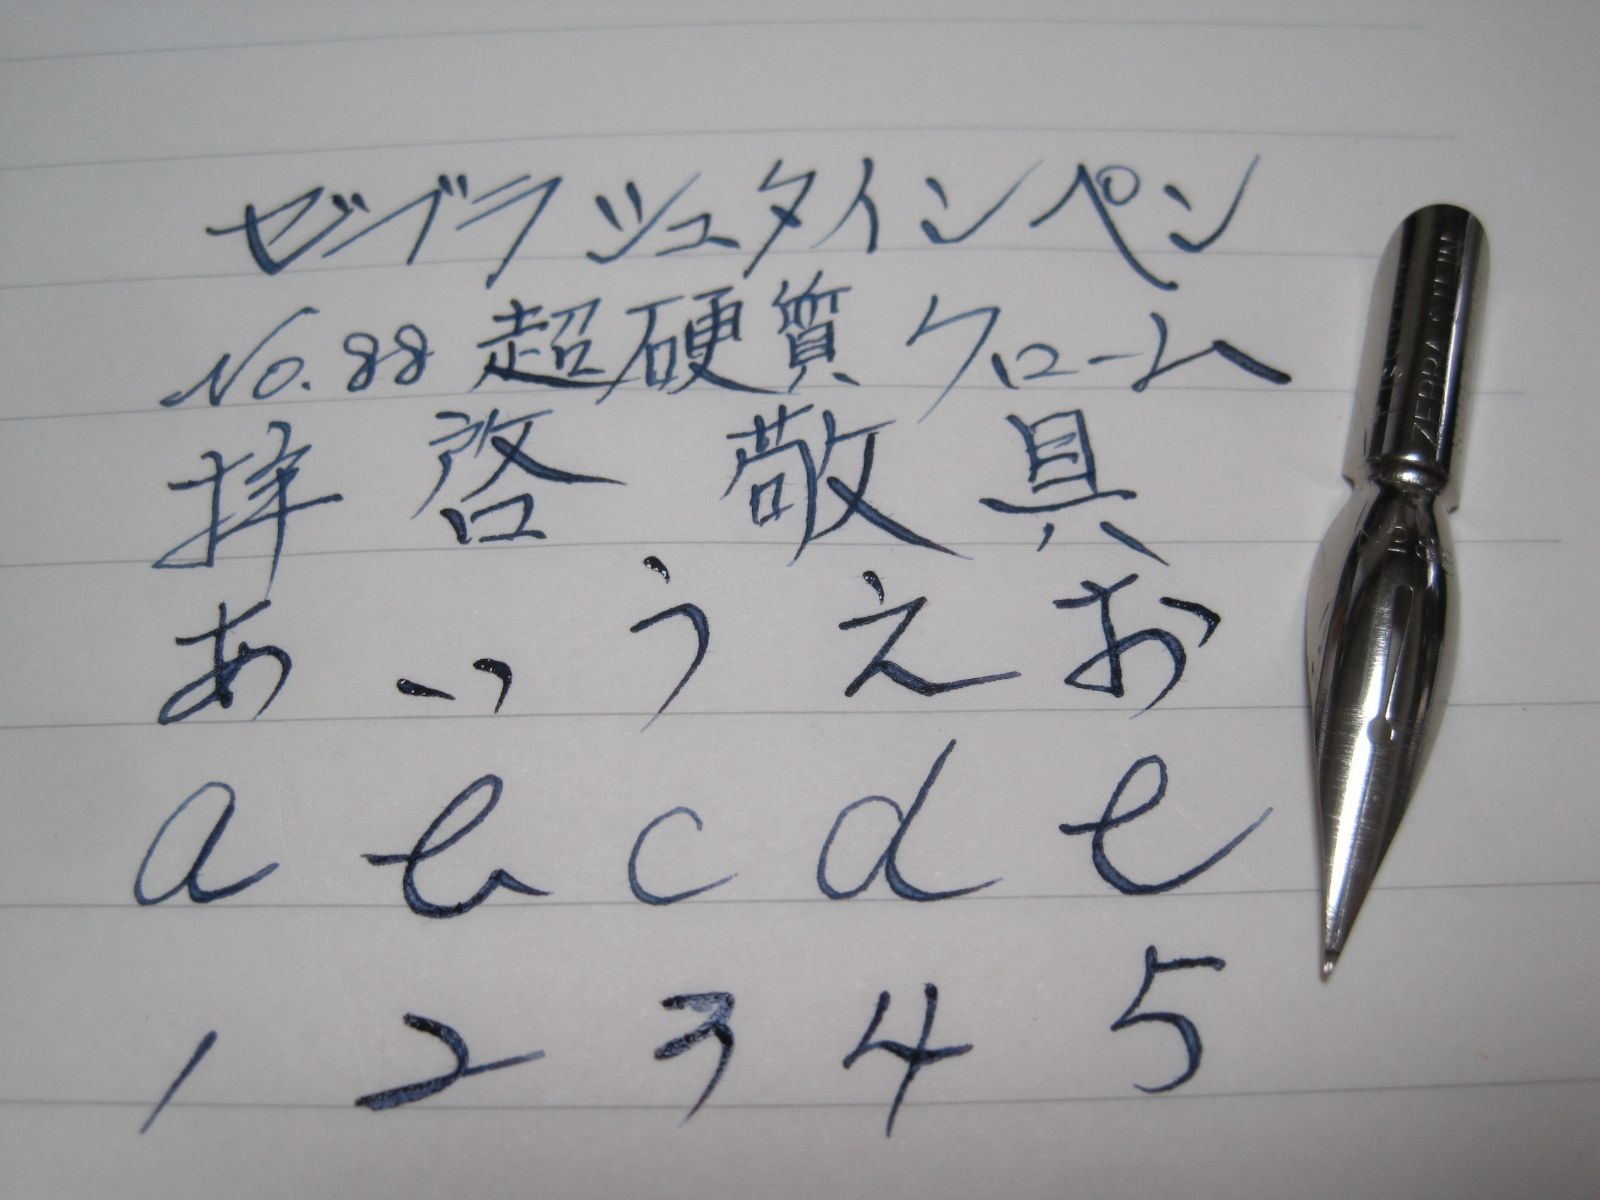 ゼブラ シュタインペン
No.88 超硬質クローム
拝 啓 敬 具
あ い う え お
a b c d e
1 2 3 4 5
ZEBRA